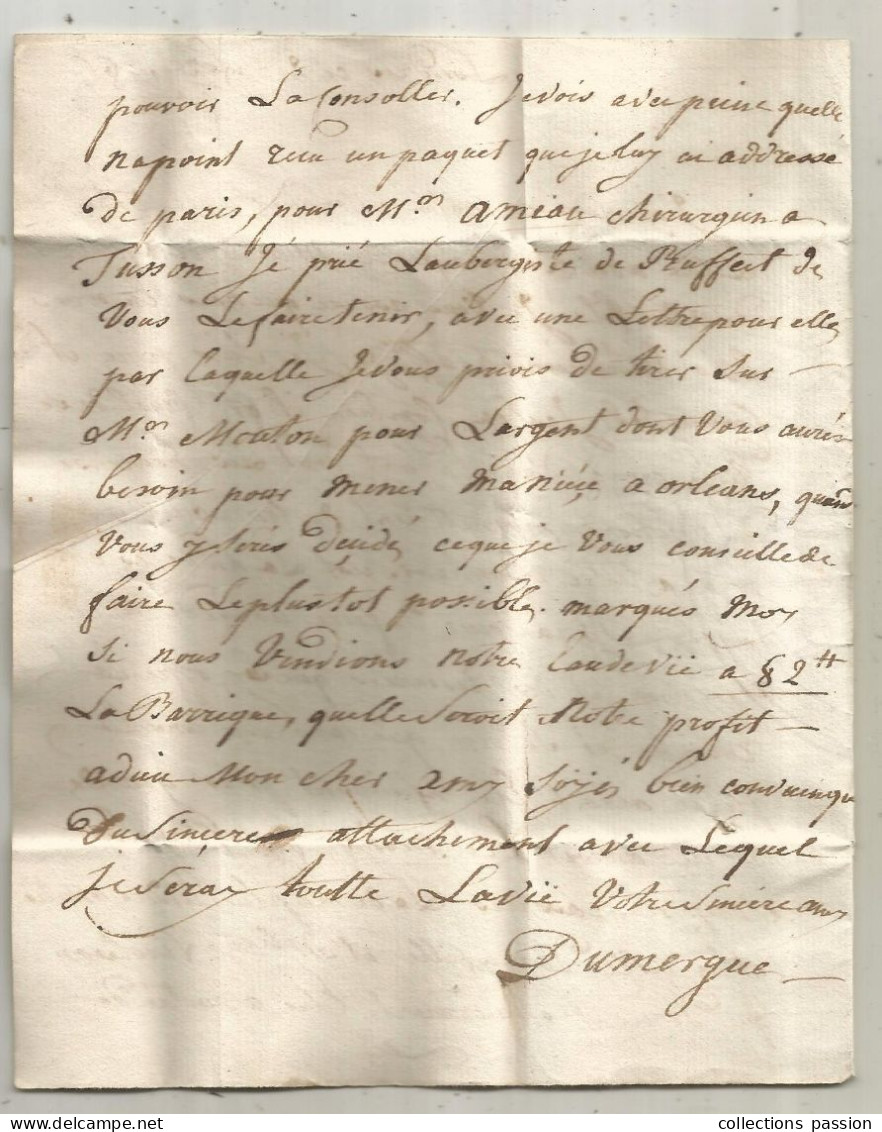 pouvoir La Consoller. Jevois avec peine quelle
napoint recu un paquet que je luy ai addressé
de paris, pour Mr. amiau chirurgien a
Tusson Jé prié Laubergiste de Ruffect de
Vous Lefairetenir, avec une Lettre pour elle
par laquelle Jevous priois de tirer sur —
Mr. Mouton pour Largent dont Vous aurés
besoin pour mener a orleans, quand
Vous y serés décidé, ceque je Vous conseille de
faire Leplustot possible. marqués moy
si nous Vendions notre Eaudevië a 82tt
La Barrique, quelle Seroit Notre profit —
adieu Mon cher amy Soÿés bien convaincu
Du Sincere attachement avec Lequel
je Seray toutte Lavië Votre Sincere amy
Dumergue —
collections passion